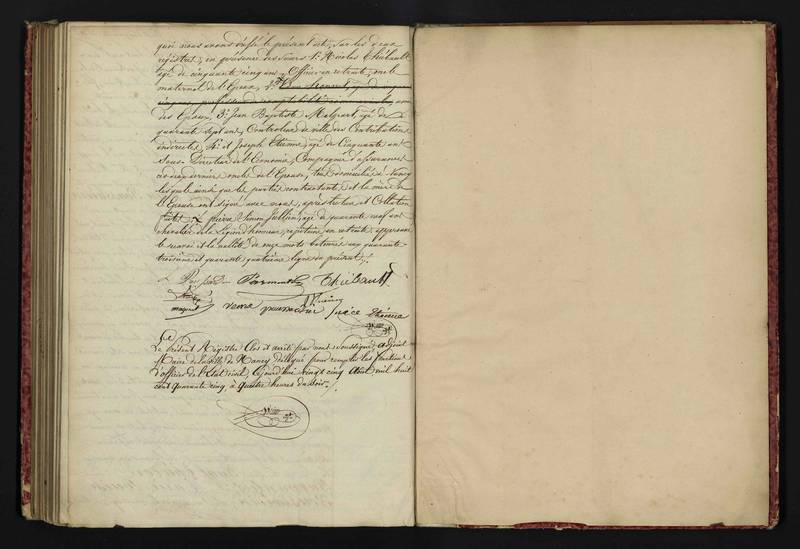 que nous avons dressé le présent acte, sur les deux
registres, en présence des Sieurs 1° Nicolas Thiébault
âgé de cinquante cinq ans, Officier en retraite, oncle
maternel de l'Epoux, 2°
des Epoux, 3° Jean Baptiste âgé de
quarante sept ans, Controleur de ville des Contributions
indirectes, 4° et Joseph Etienne, âgé de Cinquante ans
Sous-Directeur de l'Economie, Compagnie d'assurances
ce dernier oncle de l'Epouse, tous domiciliés à Nancy
lesquels ainsi que les parties contractantes, et la mère de
l'Epouse ont signé avec nous, après lecture et Collation
faites. pierre Simon Jullien, âgé de quarante neuf ans
chevalier de la Légion d'honneur, capitaine en retraite, approuvé
le renvoi et la nullité de onze mots batonnés aux quarante-
troisième et quarante quatrième lignes du présent.
Thiébault
veuve Etienne
Le Présent Registre Clos et arrêté par nous soussigné, adjoint
Maire de la ville de Nancy délégué pour remplir les fonctions
d'officier de l'Etat civil, Cejourd'hui vingt cinq Août mil huit
cent quarante cinq, à quatre heures du Soir.